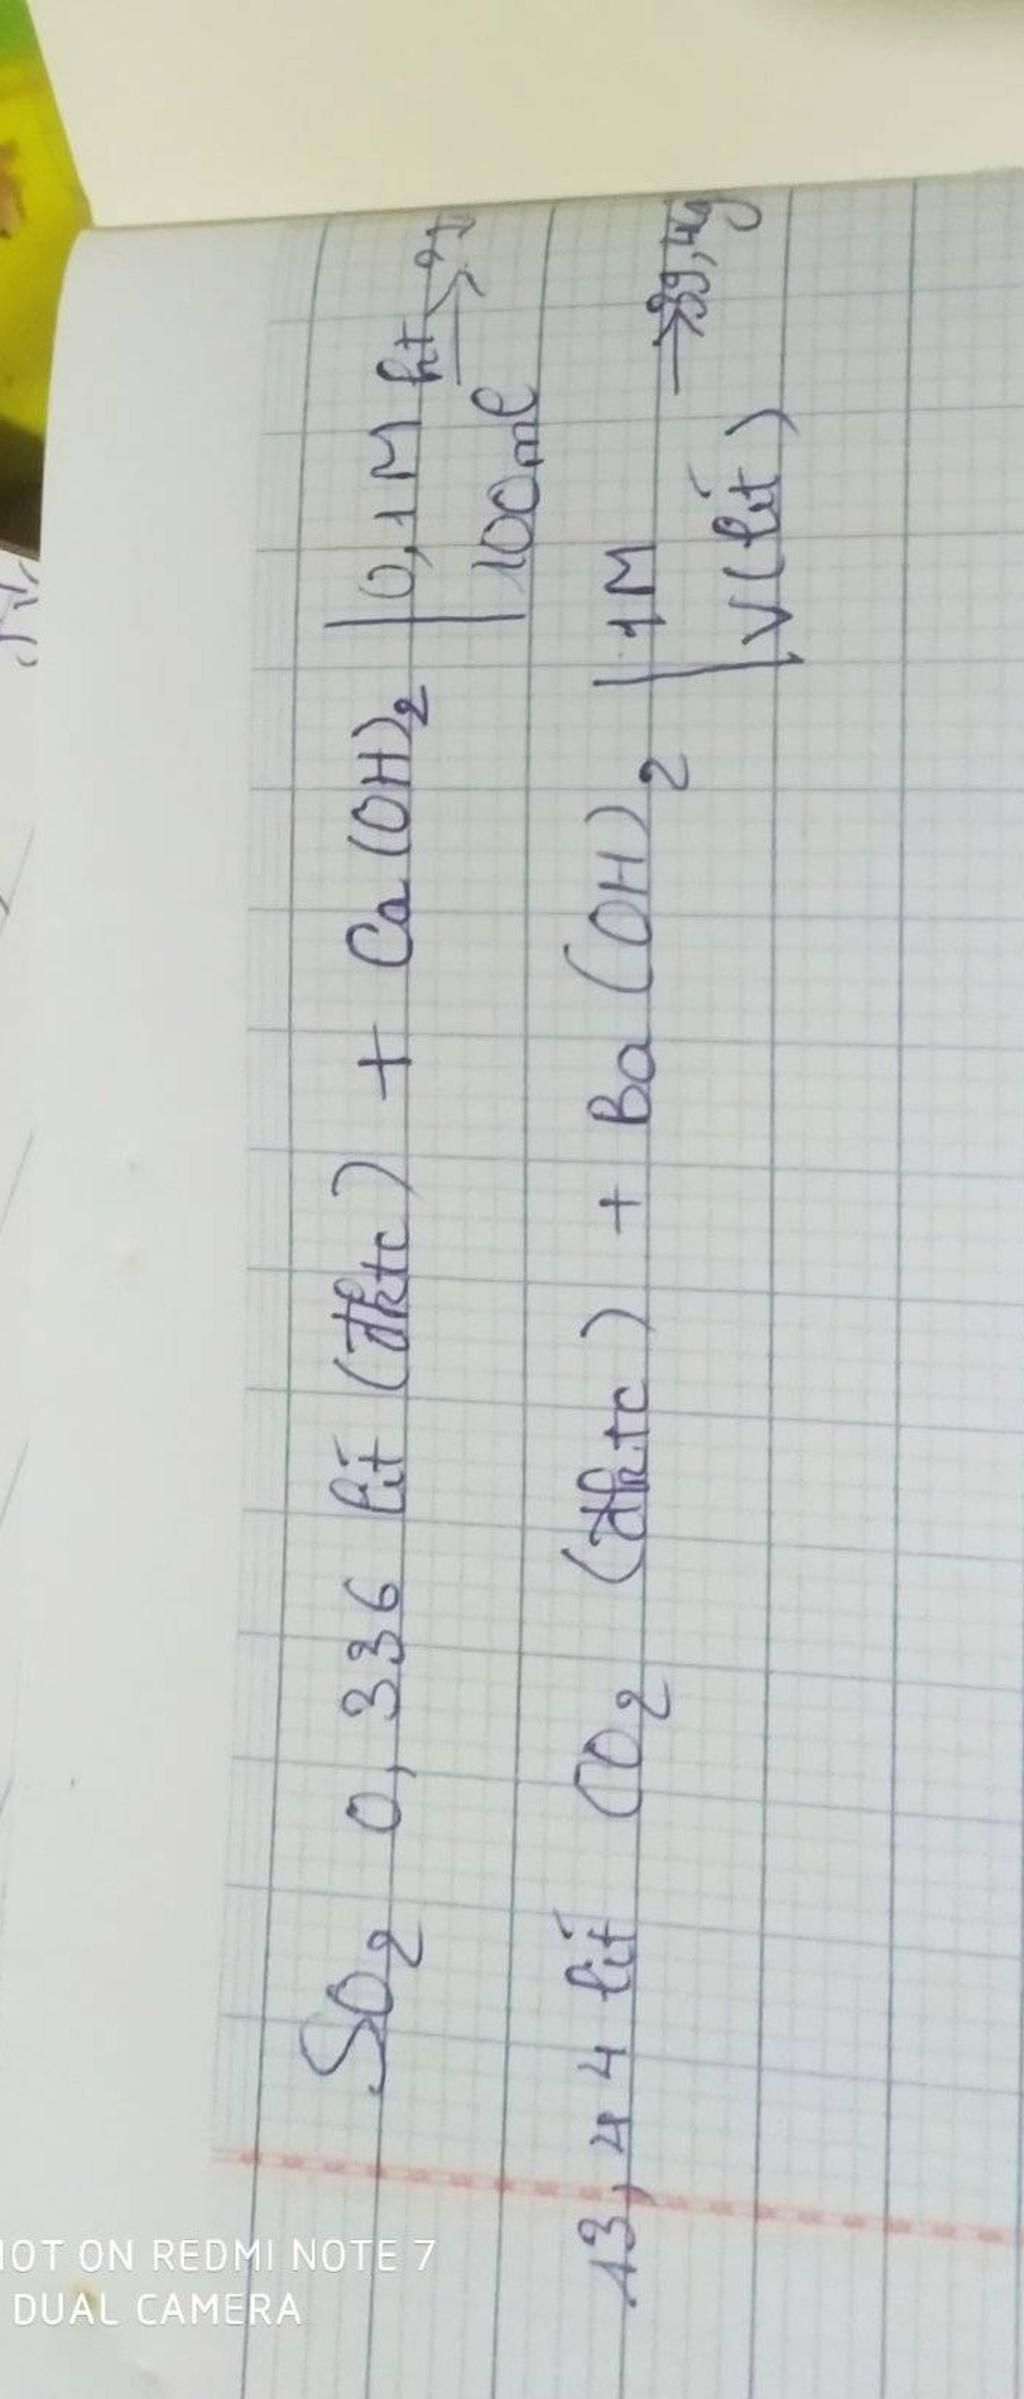 SO2 0,336 lít (đktc) + Ca(OH)2 | 0,1M ht →
100ml
13,44 lít CO2 (đktc) + Ba(OH)2 | 1M → 39,4g
V(lít)
HOT ON REDMI NOTE 7
DUAL CAMERA